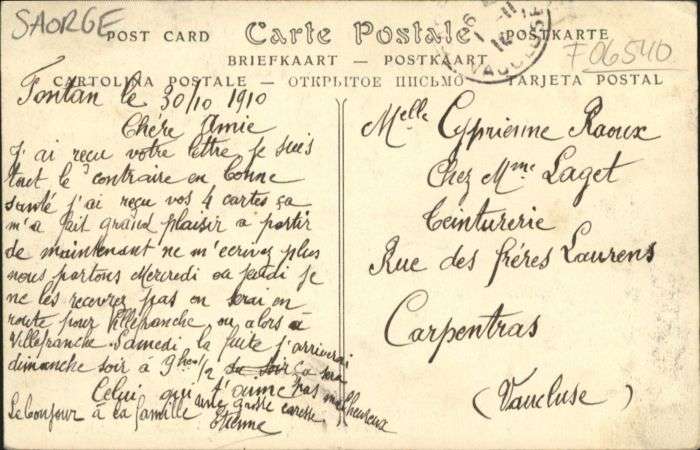 SAORGE
POST CARD Carte Postale POSTKARTE
F06540
BRIEFKAART — POSTKAART
CARTOLINA POSTALE — ОТКРЫТОЕ ПИСЬМО — TARJETA POSTAL
VAUCLUSE
Fontan le 30/10 1910
Chére Amie
J'ai reçu votre lettre je suis
tout le contraire en bonne
santé j'ai reçu vos 4 cartes ça
m'a fait grand plaisir a partir
de maintenant ne m'ecrivez plus
nous partons Mercredi ou jeudi je
ne les recevrez pas on serai en
route pour Villefranche ou alors à
Villefranche Samedi la j'arriverai
dimanche soir à 9 hes 1/2 ça sera
pas malheureux
Celui qui t'aime
une grosse caresse
Le bonjour à la famille
Etienne
Melle Cyprienne Raoux
Chez Mme Laget
Teinturerie
Rue des fréres Laurens
Carpentras
(Vaucluse)